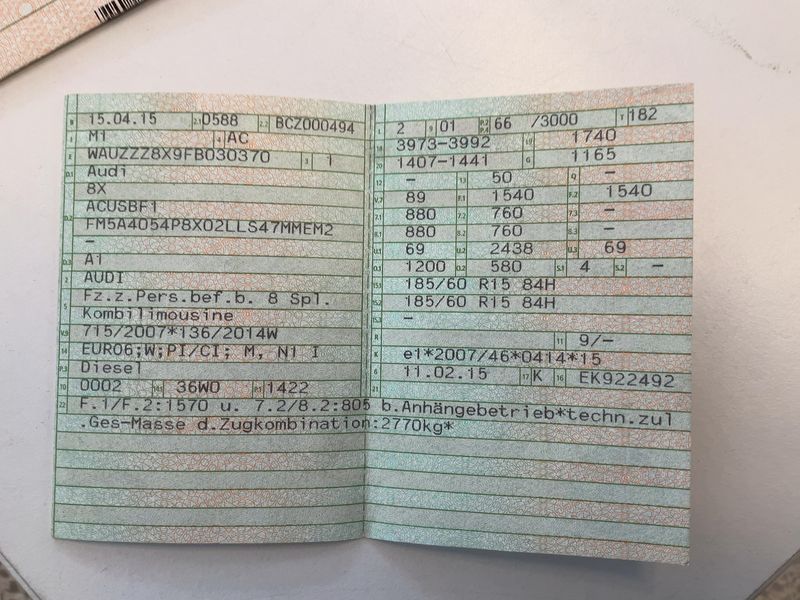 B 15.04.15 2.1 0588 2.2 BCZ000494
J M1 4 AC
E WAUZZZ8X9FB030370 3 1
D.1 Audi
8X
D.2 ACUSBF1
FM5A4054P8X02LLS47MMEM2
–
D.3 A1
2 AUDI
5 Fz.z.Pers.bef.b. 8 Spl.
Kombilimousine
V.9 715/2007*136/2014W
14 EURO6;W;PI/CI; M, N1 I
P.3 Diesel
10 0002 14.1 36W0 P.1 1422
L 2 9 01 P.2 P.4 66 /3000 T 182
18 3973-3992 19 1740
20 1407-1441 G 1165
12 – 13 50 Q –
V.7 89 F.1 1540 F.2 1540
7.1 880 7.2 760 7.3 –
8.1 880 8.2 760 8.3 –
U.1 69 U.2 2438 U.3 69
O.1 1200 O.2 580 S.1 4 S.2 –
15.1 185/60 R15 84H
15.2 185/60 R15 84H
15.3 –
R 11 9/–
K e1*2007/46*0414*15
6 11.02.15 17 K 16 EK922492
21
22 F.1/F.2:1570 u. 7.2/8.2:805 b.Anhängebetrieb*techn.zul
.Ges-Masse d.Zugkombination:2770kg*